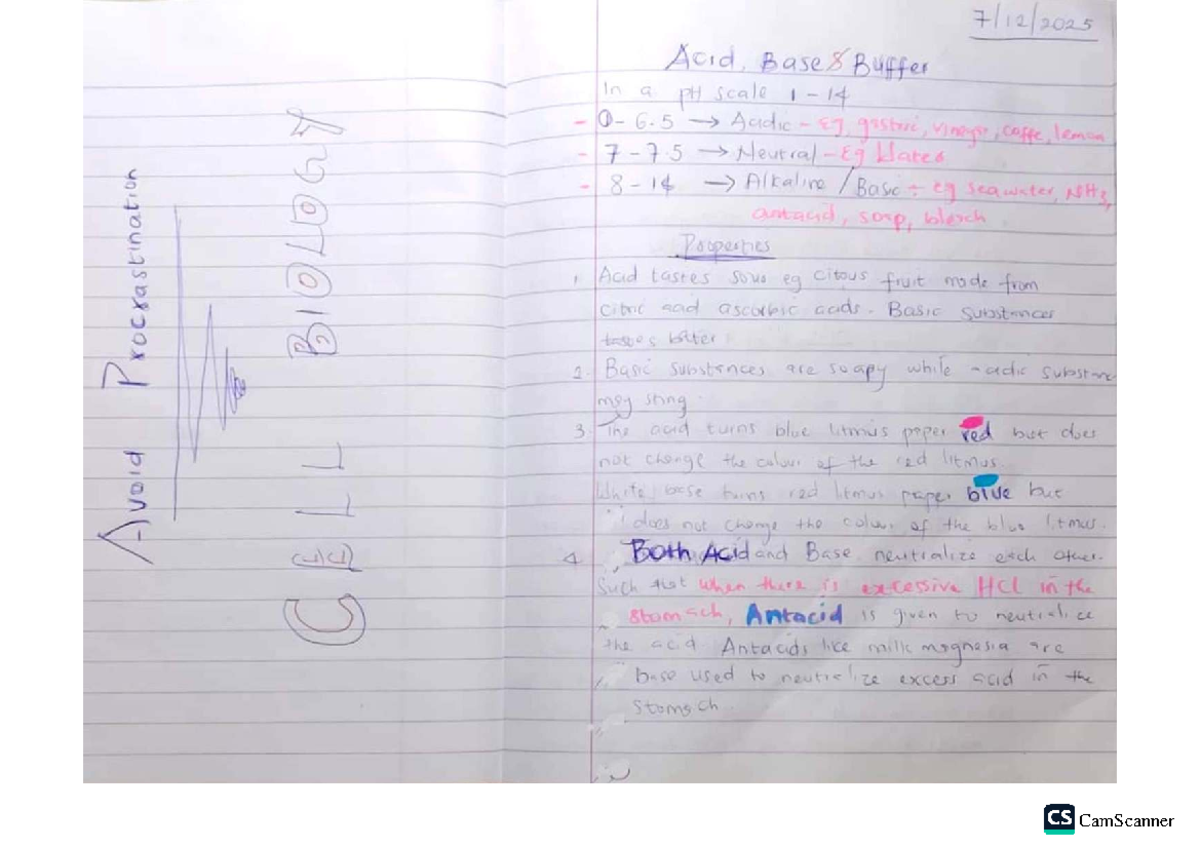 Avoid Procrastination
CELL BIOLOGY
7/12/2025
Acid, Base & Buffer
In a pH scale 1-14
- 0-6.5 → Acidic - Eg, gastric, vinegar, coffe, lemon
- 7-7.5 → Neutral - Eg Water
- 8-14 → Alkaline / Basic - eg sea water, NH3,
antacid, soap, bleach
Properties
1. Acid tastes sour eg citrous fruit made from
citric acid ascorbic acids. Basic substances
tastes bitter.
2. Basic substances are soapy while acidic substance
may sting.
3. The acid turns blue litmus paper red but does
not change the colour of the red litmus.
While base turns red litmus paper blue but
does not change the colour of the blue litmus.
4. Both Acid and Base neutralize each other.
Such that when there is excessive HCl in the
stomach, Antacid is given to neutralice
the acid Antacids like milk magnesia are
base used to neutralize excess acid in the
stomach.
CS CamScanner